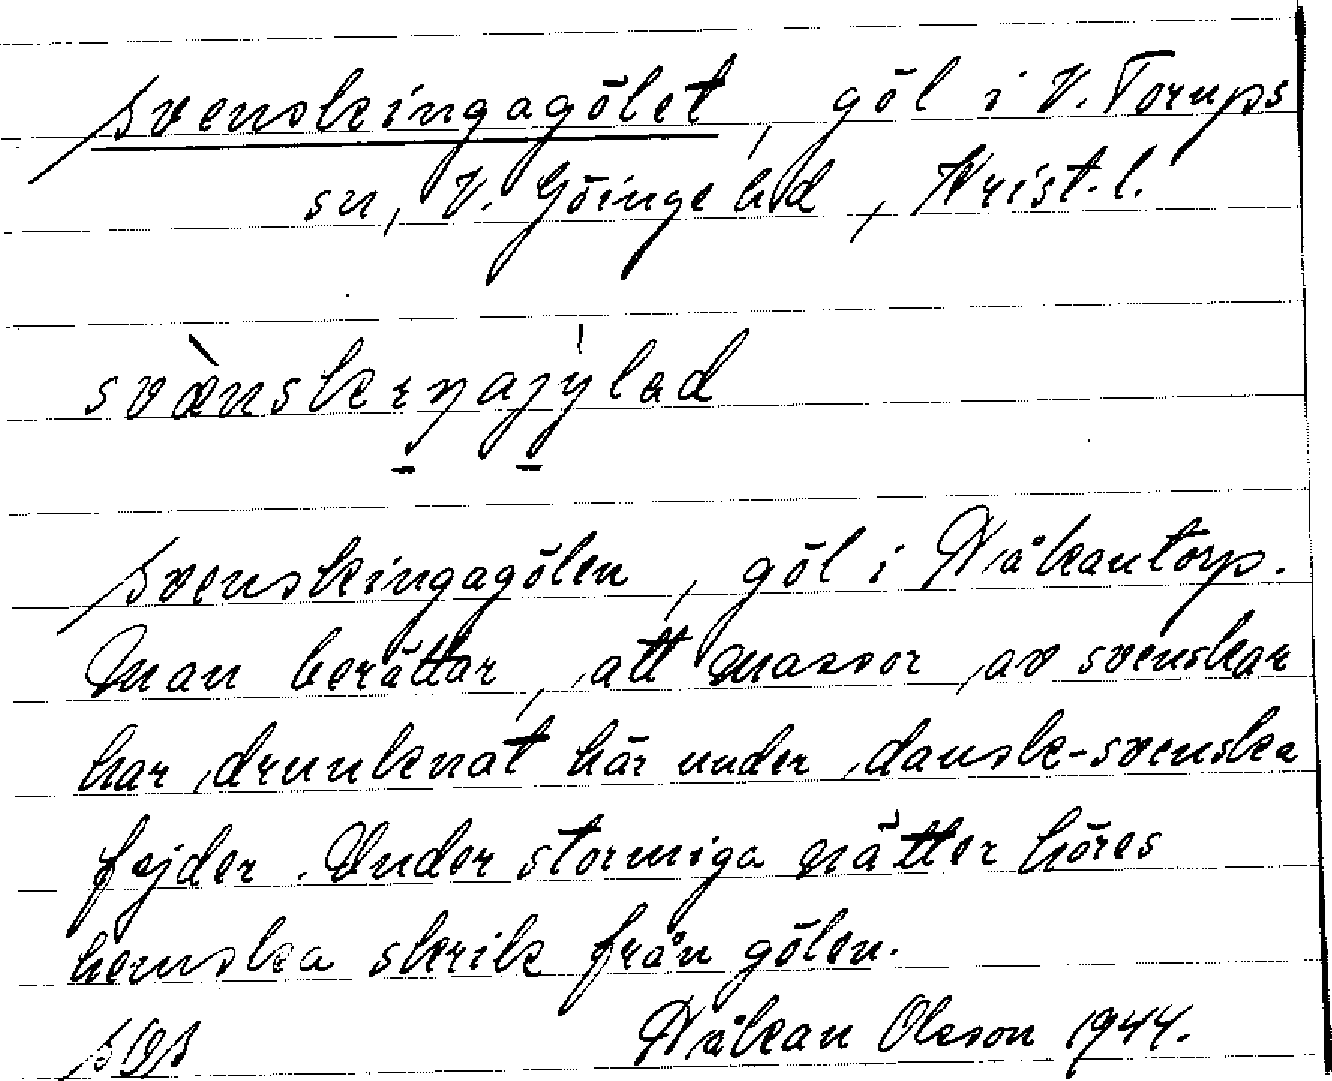 Svenskingagölet, göl i V. Torups
sn, V. Göinge hd, Krist. l.
svænskıŋajyləd
Svenskingagölen, göl i Håkantorp.
Man berättar, att massor av svenskar
har drunknat här under dansk-svenska
fejder. Under stormiga nätter höres
hemska skrik från gölen.
Håkan Olsson 1944.